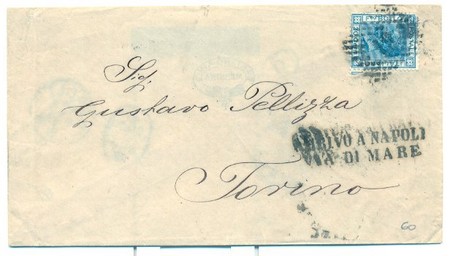 Sig.
Gustavo Pellizza
ARRIVO A NAPOLI
VIA DI MARE
Torino
60